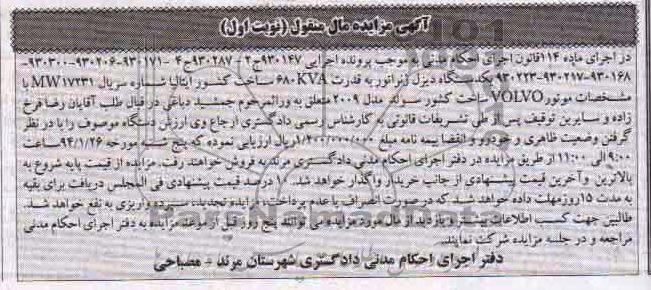 آگهی مزایده مال منقول (نوبت اول)
در اجرای ماده ۱۱۴ قانون اجرای احکام مدنی به موجب پرونده اجرایی ۹۳۰۱۴۷ج۲ - ۹۳۰۲۸۷ج۴ - ۹۳۰۱۷۱-۹۳۰۲۰۶-۹۳۰۳۰۰-
۹۳۰۱۶۸-۹۳۰۲۱۷-۹۳۰۲۲۳ یکدستگاه دیزل ژنراتور به قدرت ۶۸۰KVA ساخت کشور ایتالیا شماره سریال MW۱۷۲۳۱ با
مشخصات موتور VOLVO ساخت کشور سوئد مدل ۲۰۰۹ متعلق به ورثه مرحوم جمشید دباغی در قبال طلب آقایان رضا فرخ
زاده و سایرین توقیف پس از طی تشریفات قانونی به کارشناس رسمی دادگستری ارجاع وی ارزش دستگاه موصوف را با در نظر
گرفتن وضعیت ظاهری و جودو رو انقضا بیمه نامه مبلغ ۱/۲۰۰/۰۰۰/۰۰۰ ریال ارزیابی نموده که پنج شنبه مورخه ۹۴/۱/۲۶ ساعت
۹:۰۰ الی ۱۱:۰۰ از طریق مزایده در دفتر اجرای احکام مدنی دادگستری مرند به فروش خواهند رفت. مزایده از قیمت پایه شروع به
بالاترین و آخرین قیمت پیشنهادی از جانب خریدار واگذار خواهد شد. ۱۰ درصد قیمت پیشنهادی فی المجلس دریافت برای بقیه
به مدت ۱۵ روز مهلت داده خواهد شد که در صورت انصراف یا عدم پرداخت، مزایده تجدید، سپرده واریزی به نفع خواهد شد.
طالبین جهت کسب اطلاعات بیشتر و بازدید از مال مورد مزایده می توانند پنج روز قبل از موعد مزایده به دفتر اجرای احکام مدنی
مراجعه و در جلسه مزایده شرکت نمایند.
دفتر اجرای احکام مدنی دادگستری شهرستان مرند - مصباحی